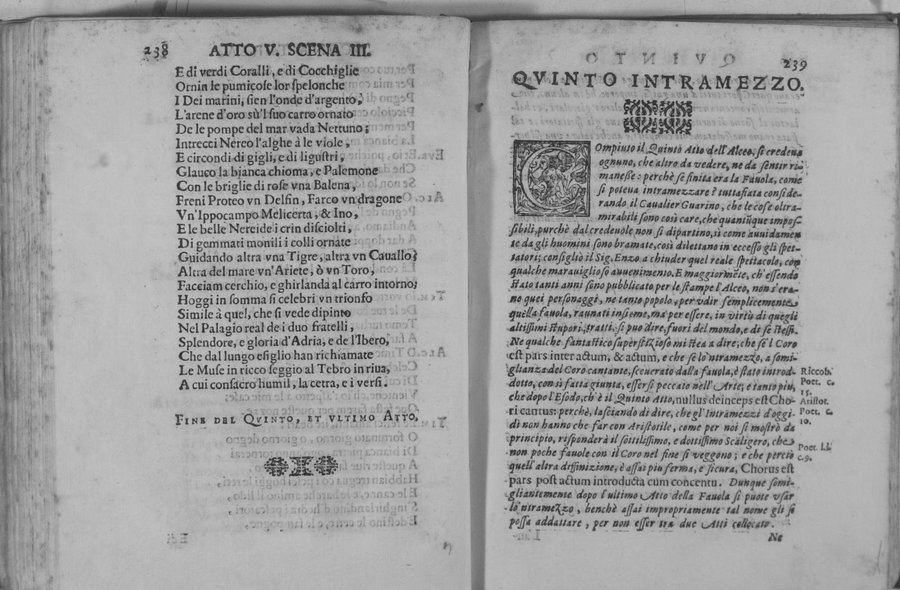 238 ATTO V. SCENA III.
E di verdi Coralli, e di Cocchiglie
Ornin le pumicose lor spelonche
I Dei marini, sien l'onde d'argento,
L'arene d'oro sù'l suo carro ornato
De le pompe del mar vada Nettuno;
Intrecci Nereo l'alghe à le viole,
E circondi di gigli, e di ligustri,
Glauco la bianca chioma, e Palemone
Con le briglie di rose vna Balena,
Freni Proteo vn Delfin, Farco vn dragone
Vn'Ippocampo Melicerta, & Ino,
E le belle Nereide i crin disciolti,
Di gemmati monili i colli ornate
Guidando altra vna Tigre, altra vn Cauallo;
Altra del mare vn'Ariete, ò vn Toro,
Facciam cerchio, e ghirlanda al carro intorno;
Hoggi in somma si celebri vn trionfo
Simile à quel, che si vede dipinto
Nel Palagio real de i duo fratelli,
Splendore, e gloria d'Adria, e de l'Ibero,
Che dal lungo esiglio han richiamate
Le Muse in ricco seggio al Tebro in riua,
A cui consacro humil, la cetra, e i versi.
FINE DEL QVINTO, ET VLTIMO ATTO.
239
QVINTO INTRAMEZZO.
COmpiuto il Quinto Atto dell'Alceo, si credeua
ognuno, che altro da vedere, ne da sentir ri-
manesse: perchè se finita era la Fauola, come
si poteua intramezzare? tuttafiata conside-
rando il Caualier Guarino, che le cose oltra-
mirabili sono così care, che quantũque impos-
sibili, purchè dal credeuole non si dipartino, sì come auuidamen-
te da gli huomini sono bramate, così dilettano in eccesso gli spet-
tatori; consigliò il Sig. Enzo a chiuder quel reale spettacolo, con
qualche marauiglioso auuenimento. E maggiormẽte, ch'essendo
stato tanti anni sono pubblicato per le stampe l'Alceo, non s'era-
no quei personaggi, ne tanto popolo, per vdir semplicemente
quella fauola, raunati insieme, ma per essere, in virtù di quegli
altissimi stupori, tratti, si può dire, fuori del mondo, e di se stessi.
Ne qualche fantastico superstizioso mi stea a dire; che se'l Coro
est pars inter actum, & actum, e che se lo'ntramezzo, a somi-
glianza del Coro cantante, sceuerato dalla fauola, è stato introd-
dotto, con sì fatta giunta, essersi peccato nell'Arte; e tanto più,
che dopo l'Esodo, ch'è il Quinto Atto, nullus deinceps est Cho-
ri cantus: perchè, lasciando di dire, che gl'Intramezzi d'oggi-
dì non hanno che far con Aristotile, come per noi si mostrò da
principio, risponderà il sottilissimo, e dottissimo Scaligero, che
non poche fauole con il Coro nel fine si veggono; e che perciò
quell'altra diffinizione, è assai piu ferma, e sicura, Chorus est
pars post actum introducta cum concentu. Dunque somi-
gliantemente dopo l'ultimo Atto della Fauola si puote vsar
lo'ntramezzo, benchè assai impropriamente tal nome gli si
possa addattare, per non esser tra due Atti collocato.
Riccob.
Poet. c.
15.
Aristot.
Poet. c.
10.
Poet. l.1.
c.9.
Ne